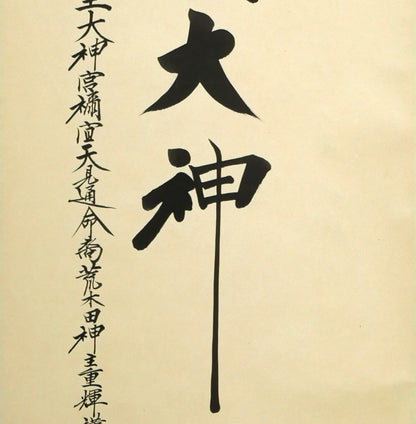 大神
大神宮禰宜天見通命裔荒木田神主重輝